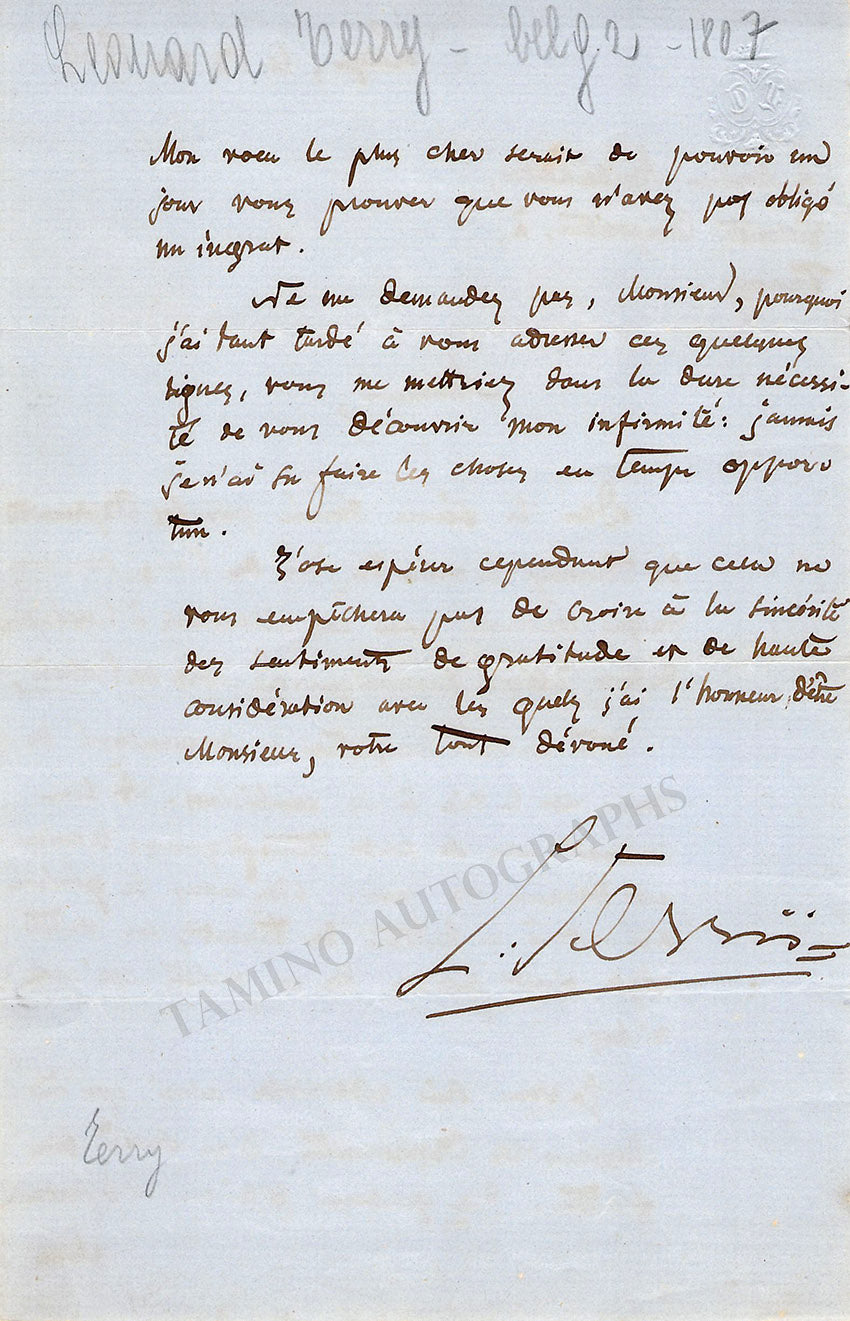 Leonard Terry - belg 2 - 1807
D
Mon voeu le plus cher serait de pouvoir un
jour vous prouver que vous n'avez pas obligé
un ingrat.
Ne me demandez pas, Monsieur, pourquoi
j'ai tant tardé à vous adresser ces quelques
lignes, vous me mettriez dans la dure nécessi-
té de vous découvrir mon infirmité: jamais
je n'ai su faire les choses en temps oppor
tun.
J'ose espérer cependant que cela ne
vous empêchera pas de croire à la sincérité
des sentiments de gratitude et de haute
considération avec les quels j'ai l'honneur d'être
Monsieur, votre tout dévoué.
L. Terry
TAMINO AUTOGRAPHS
Terry